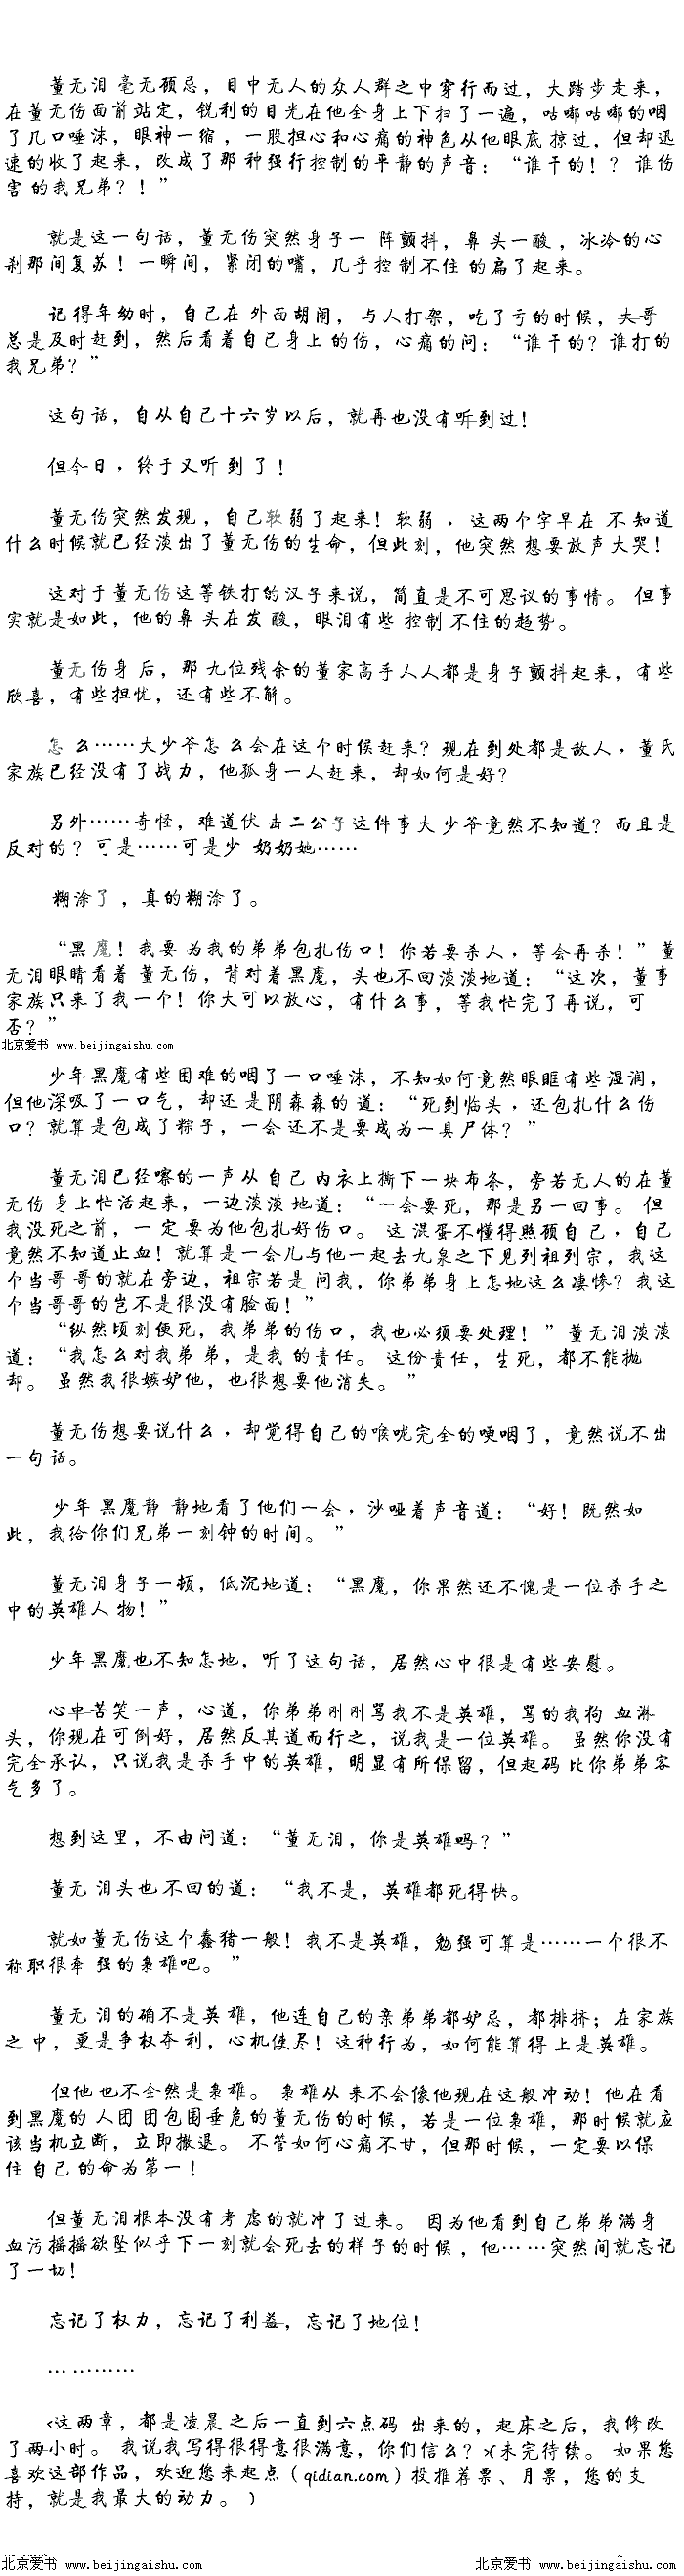 董无泪毫无顾忌，目中无人的众人群之中穿行而过，大踏步走来，
在董无伤面前站定，锐利的目光在他全身上下扫了一遍，咕嘟咕嘟的咽
了几口唾沫，眼神一缩，一股担心和心痛的神色从他眼底掠过，但却迅
速的收了起来，改成了那种强行控制的平静的声音：“谁干的！？谁伤
害的我兄弟？！”
就是这一句话，董无伤突然身子一阵颤抖，鼻头一酸，冰冷的心
刹那间复苏！一瞬间，紧闭的嘴，几乎控制不住的扁了起来。
记得年幼时，自己在外面胡闹，与人打架，吃了亏的时候，大哥
总是及时赶到，然后看着自己身上的伤，心痛的问：“谁干的？谁打的
我兄弟？”
这句话，自从自己十六岁以后，就再也没有听到过！
但今日，终于又听到了！
董无伤突然发现，自己软弱了起来！软弱，这两个字早在不知道
什么时候就已经淡出了董无伤的生命，但此刻，他突然想要放声大哭！
这对于董无伤这等铁打的汉子来说，简直是不可思议的事情。但事
实就是如此，他的鼻头在发酸，眼泪有些控制不住的趋势。
董无伤身后，那九位残余的董家高手人人都是身子颤抖起来，有些
欣喜，有些担忧，还有些不解。
怎么……大少爷怎么会在这个时候赶来？现在到处都是敌人，董氏
家族已经没有了战力，他孤身一人赶来，却如何是好？
另外……奇怪，难道伏击二公子这件事大少爷竟然不知道？而且是
反对的？可是……可是少奶奶她……
糊涂了，真的糊涂了。
“黑魔！我要为我的弟弟包扎伤口！你若要杀人，等会再杀！”董
无泪眼睛看着董无伤，背对着黑魔，头也不回淡淡地道：“这次，董事
家族只来了我一个！你大可以放心，有什么事，等我忙完了再说，可
否？”
北京爱书 www.beijingaishu.com
少年黑魔有些困难的咽了一口唾沫，不知如何竟然眼眶有些湿润，
但他深吸了一口气，却还是阴森森的道：“死到临头，还包扎什么伤
口？就算是包成了粽子，一会还不是要成为一具尸体？”
董无泪已经嚓的一声从自己内衣上撕下一块布条，旁若无人的在董
无伤身上忙活起来，一边淡淡地道：“一会要死，那是另一回事。但
我没死之前，一定要为他包扎好伤口。这混蛋不懂得照顾自己，自己
竟然不知道止血！就算是一会儿与他一起去九泉之下见到祖到宗，我这
个当哥哥的就在旁边，祖宗若是问我，你弟弟身上怎地这么凄惨？我这
个当哥哥的岂不是很没有脸面！”
“纵然顷刻便死，我弟弟的伤口，我也必须要处理！”董无泪淡淡
道：“我怎么对我弟弟，是我的责任。这份责任，生死，都不能抛
却。虽然我很嫉妒他，也很想要他消失。”
董无伤想要说什么，却觉得自己的喉咙完全的哽咽了，竟然说不出
一句话。
少年黑魔静静地看了他们一会，沙哑着声音道：“好！既然如
此，我给你们兄弟一刻钟的时间。”
董无泪身子一顿，低沉地道：“黑魔，你果然还不愧是一位杀手之
中的英雄人物！”
少年黑魔也不知怎地，听了这句话，居然心中很是有些安慰。
心中苦笑一声，心道，你弟弟刚刚骂我不是英雄，骂的我狗血淋
头，你现在可倒好，居然反其道而行之，说我是一位英雄。虽然你没有
完全承认，只说我是杀手中的英雄，明显有所保留，但起码比你弟弟客
气多了。
想到这里，不由问道：“董无泪，你是英雄吗？”
董无泪头也不回的道：“我不是，英雄都死得快。
就如董无伤这个蠢猪一般！我不是英雄，勉强可算是……一个很不
称职很牵强的枭雄吧。”
董无泪的确不是英雄，他连自己的亲弟弟都妒忌，都排挤；在家族
之中，更是争权夺利，心机使尽！这种行为，如何能算得上是英雄。
但他也不全然是枭雄。枭雄从来不会像他现在这般冲动！他在看
到黑魔的人团团包围垂危的董无伤的时候，若是一位枭雄，那时候就应
该当机立断，立即撤退。不管如何心痛不甘，但那时候，一定要以保
住自己的命为第一！
但董无泪根本没有考虑的就冲了过来。因为他看到自己弟弟满身
血污摇摇欲坠似乎下一刻就会死去的样子的时候，他……突然间就忘记
了一切！
忘记了权力，忘记了利益，忘记了地位！
…………
<这两章，都是凌晨之后一直到六点码出来的，起床之后，我修改
了两小时。我说我写得很得意很满意，你们信么？>(未完待续。如果您
喜欢这部作品，欢迎您来起点（qidian.com）投推荐票、月票，您的支
持，就是我最大的动力。）
北京爱书 www.beijingaishu.com
北京爱书 www.beijingaishu.com